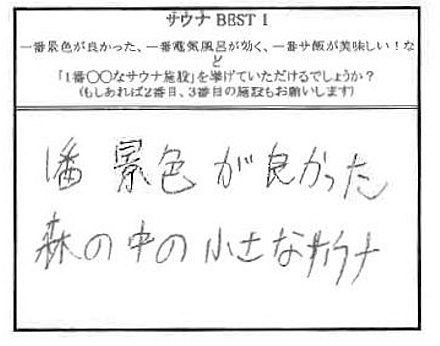 サウナ BEST 1
一番景色が良かった、一番電気風呂が効く、一番サ飯が美味しい！な
ど
「1番〇〇なサウナ施設」を挙げていただけるでしょうか？
(もしあれば2番目、3番目の施設もお願いします)
1番 景色が良かった
森の中の小さなサウナ